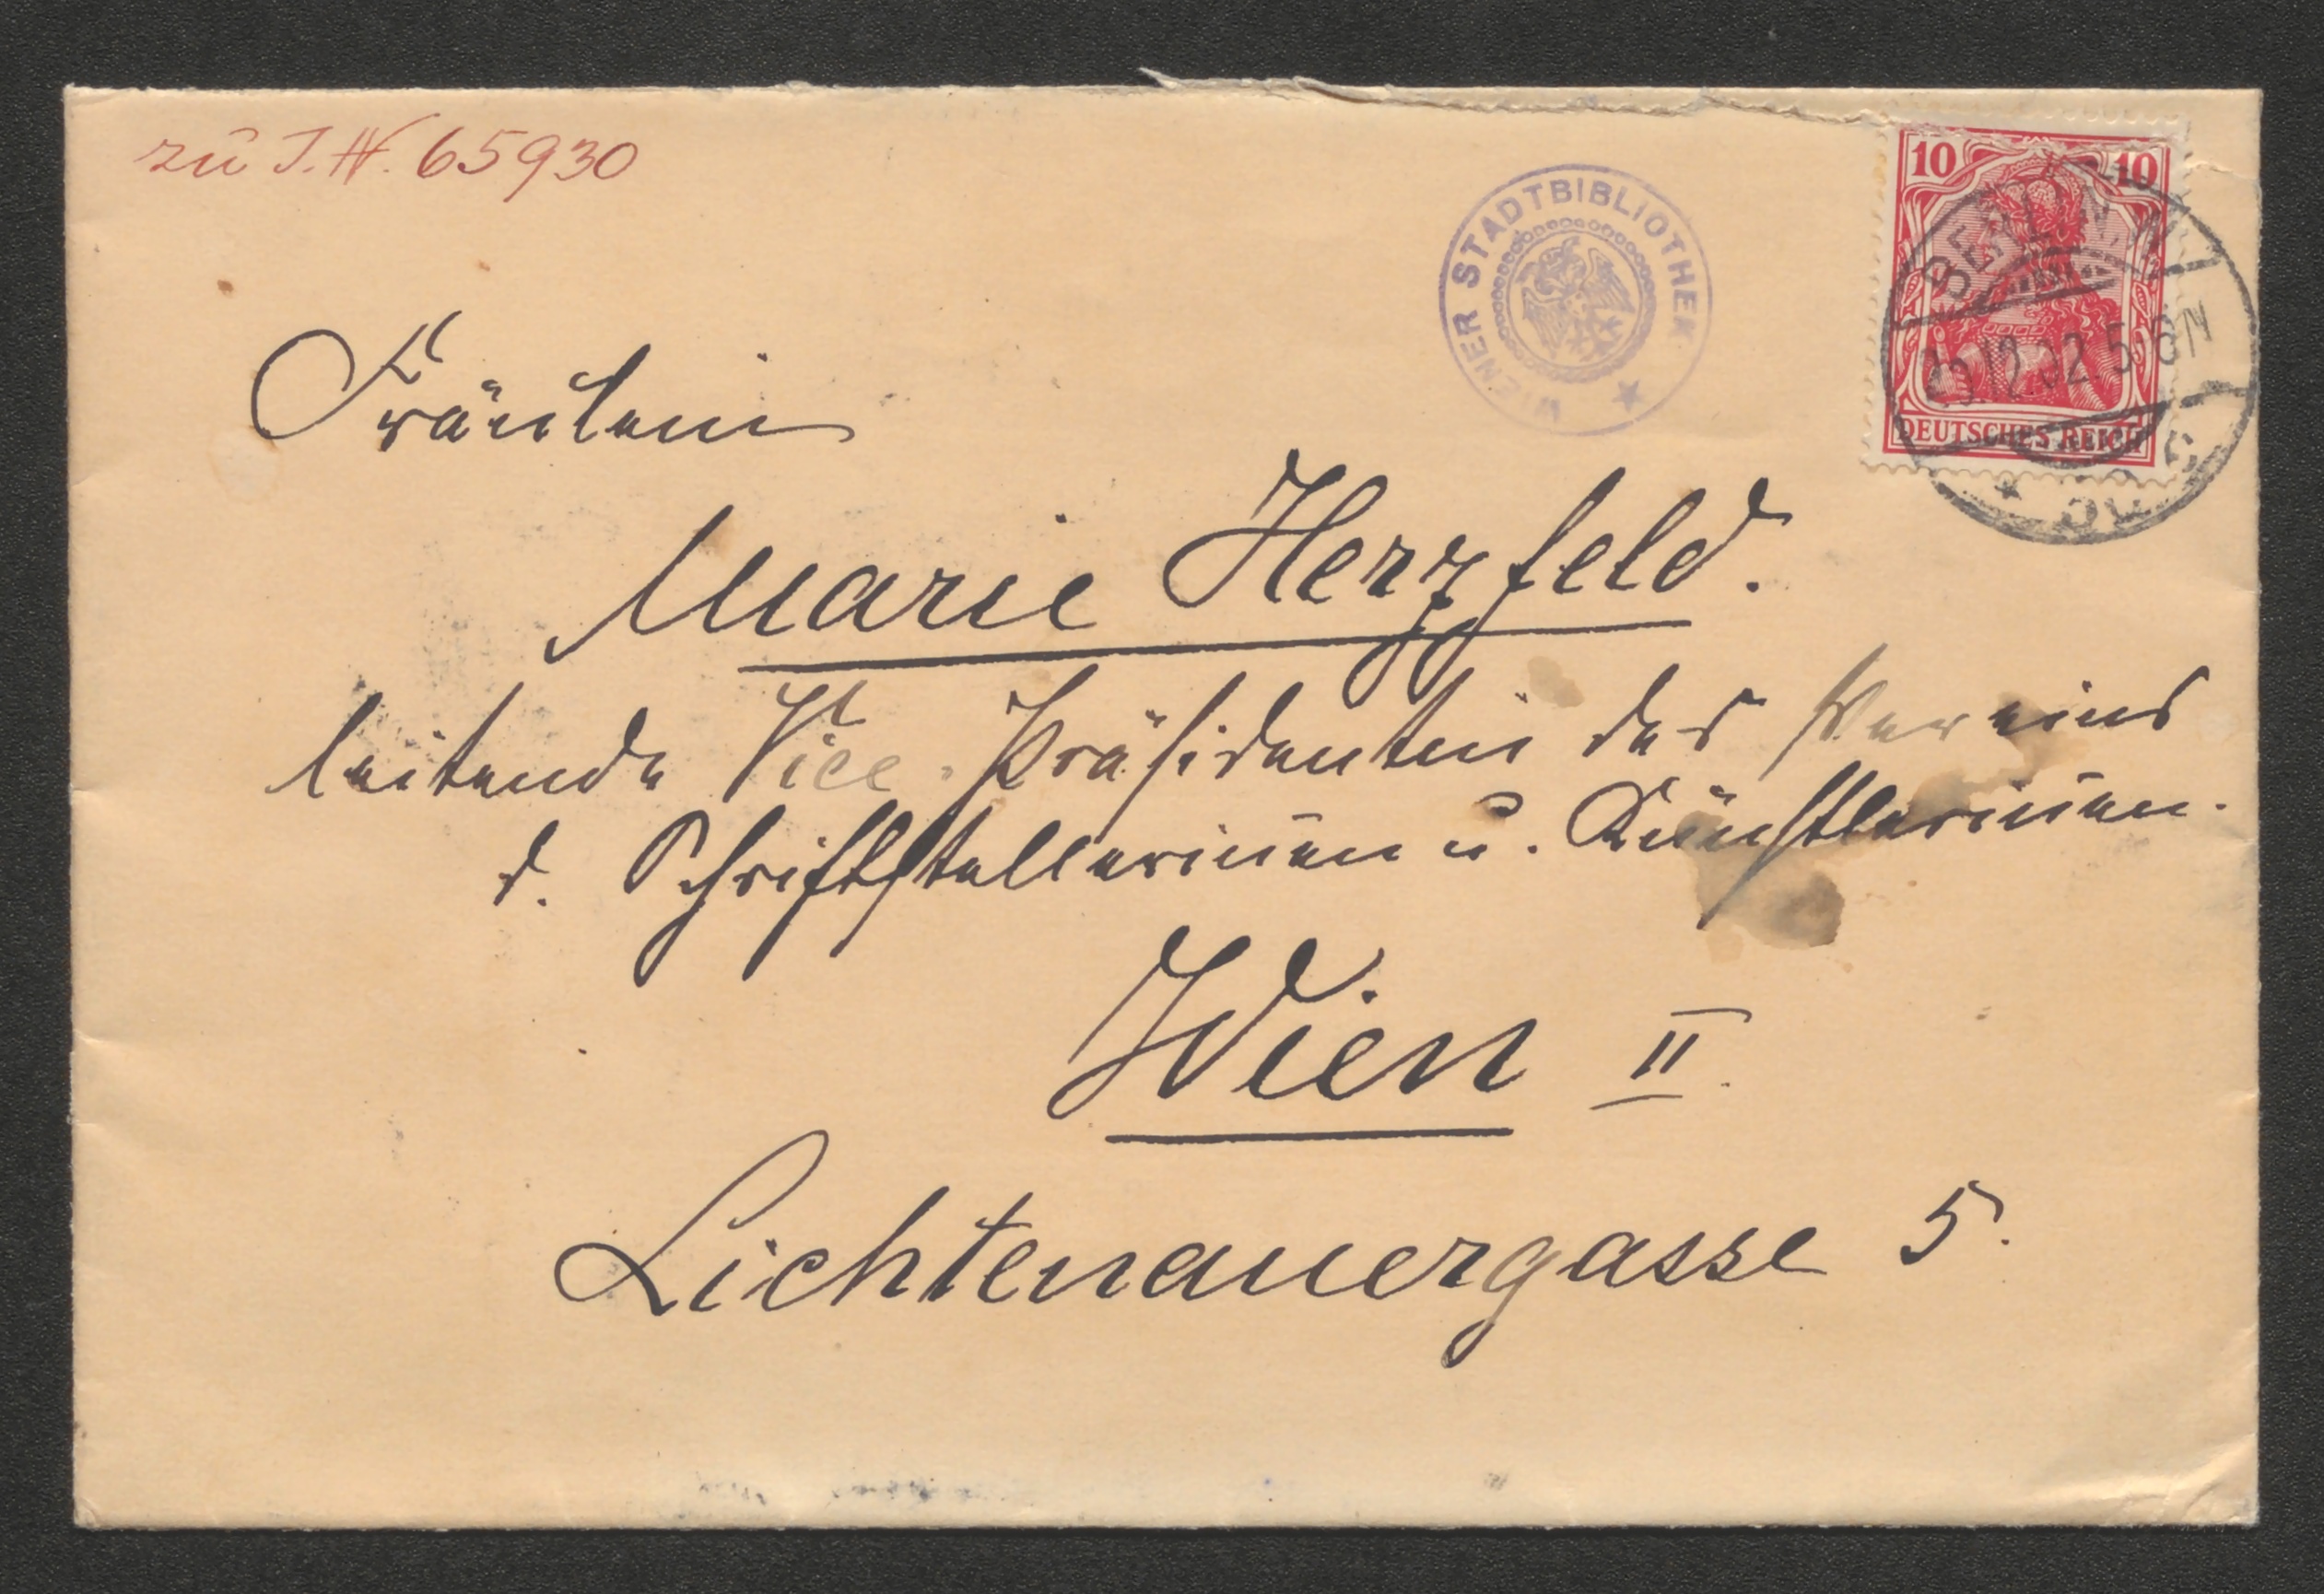 zu I.N. 65930
WIENER STADTBIBLIOTHEK
10 10
BERLIN, N.W.
.12.02. 5-6N
DEUTSCHES REICH
Fräulein
Marie Herzfeld.
leitende Vice-Präsidentin des Vereins
d. Schriftstellerinnen u. Künstlerinnen.
Wien II.
Lichtenauergasse 5.